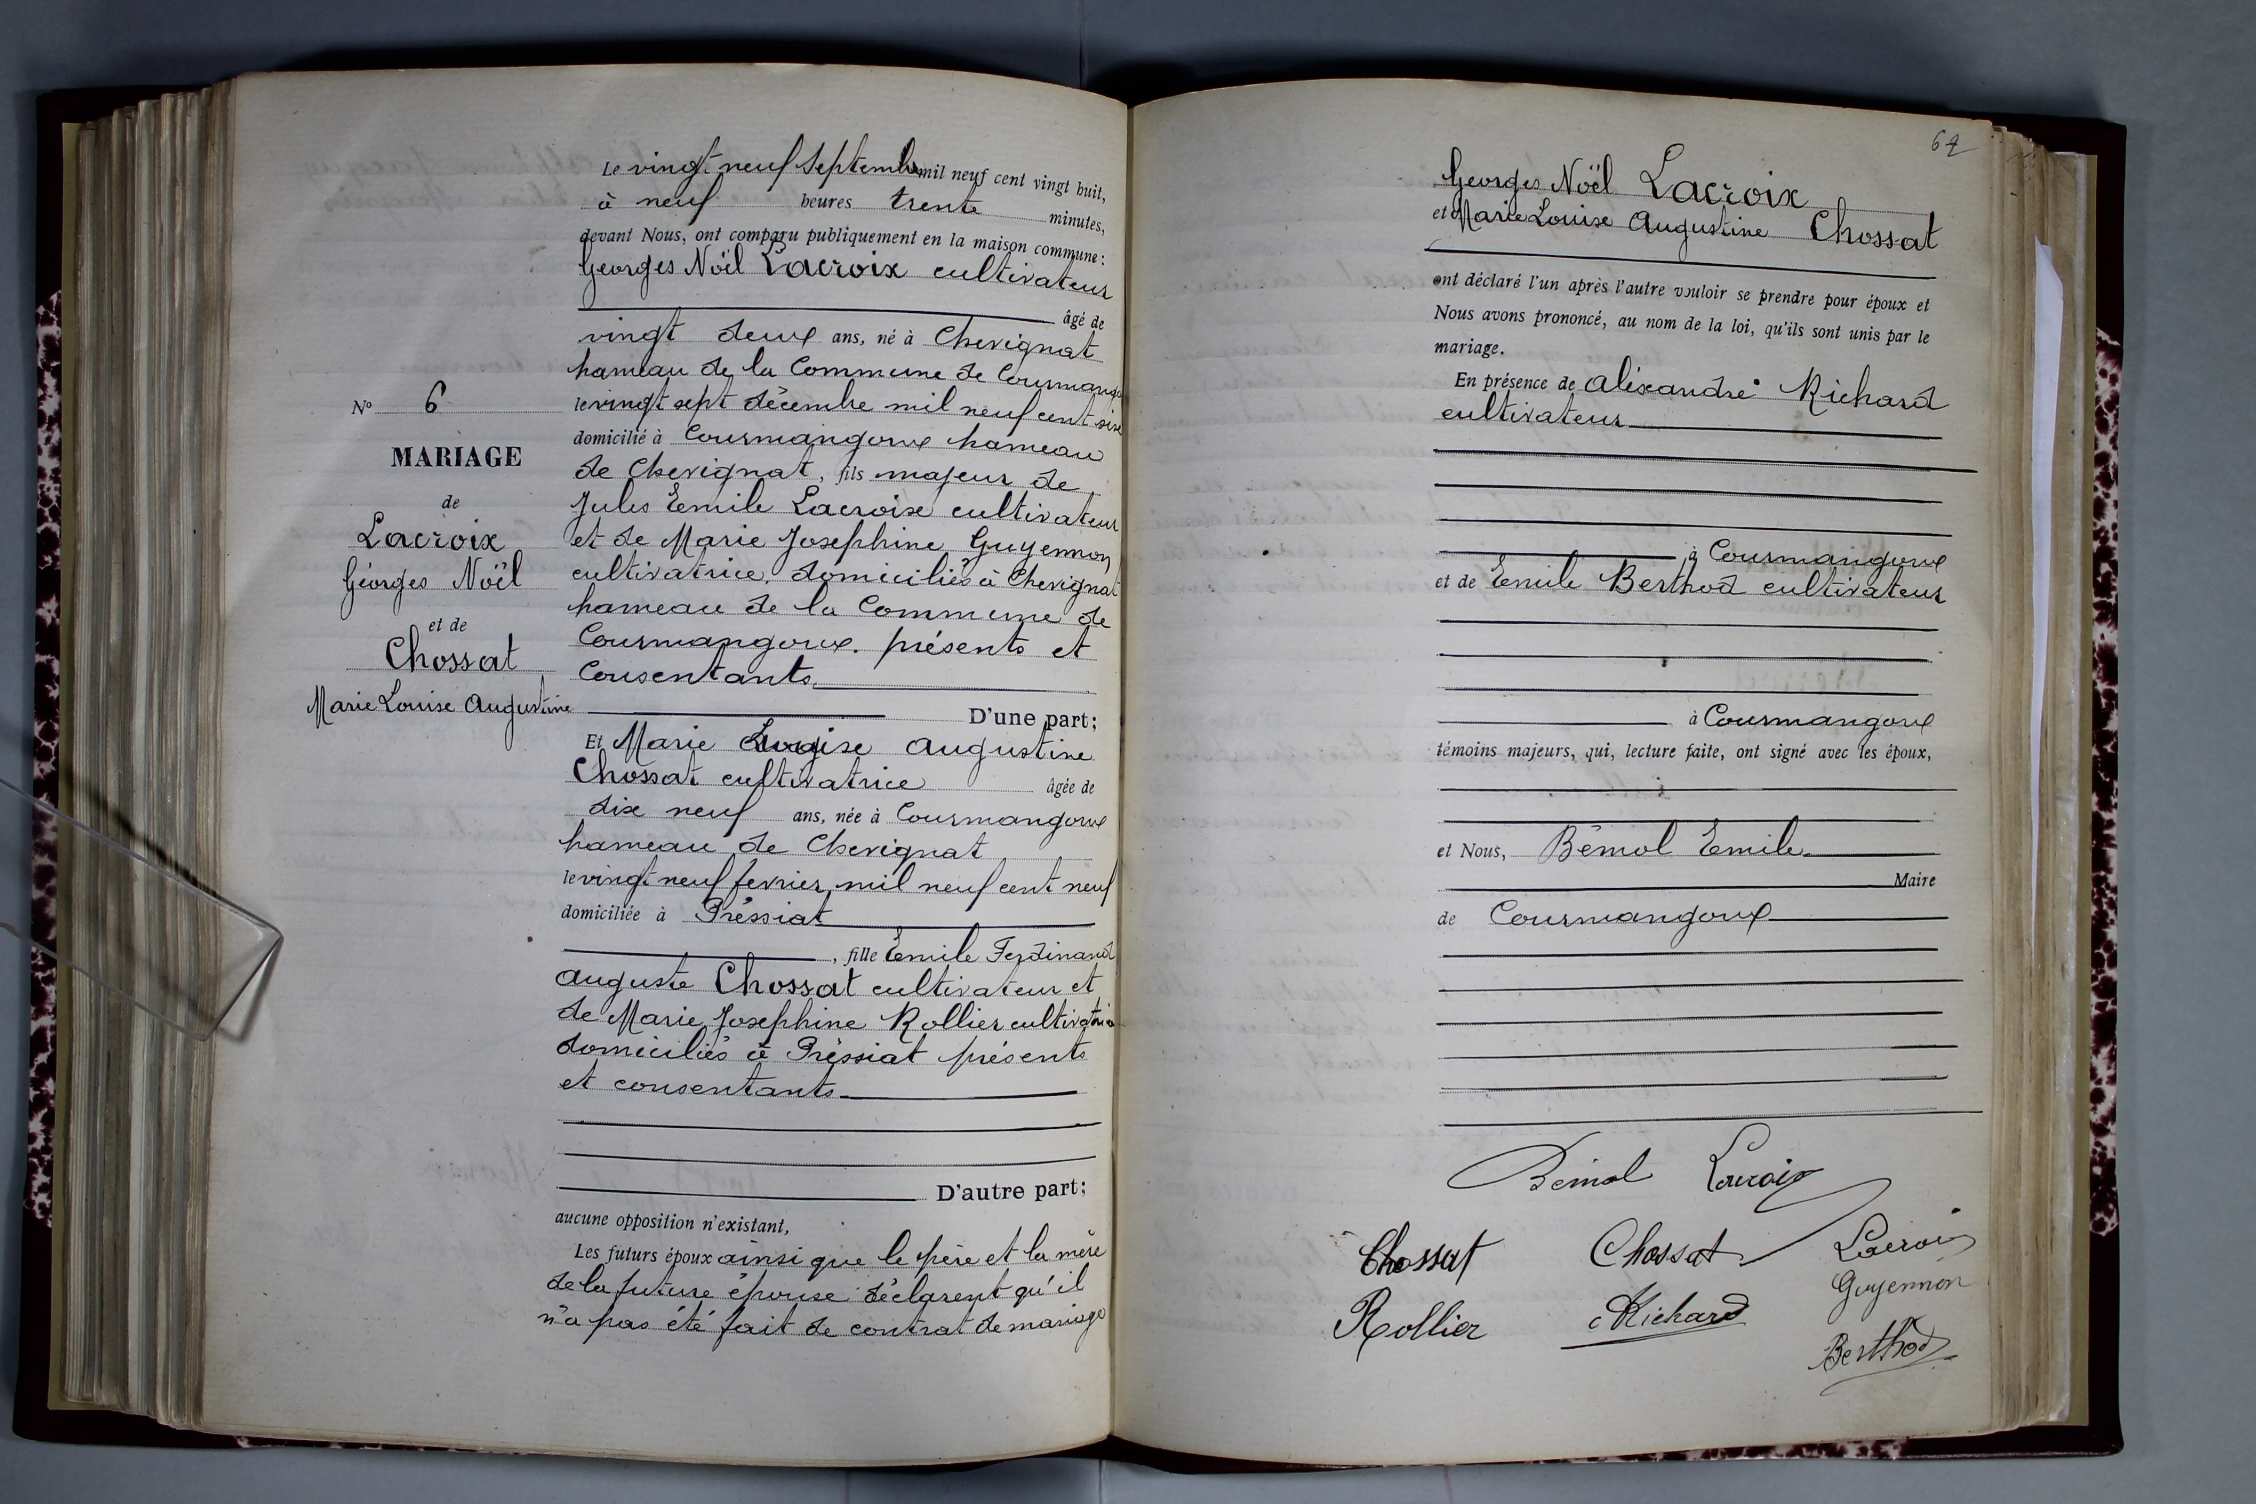 Le vingt neuf Septembre mil neuf cent vingt huit,
à neuf heures trente minutes,
devant Nous, ont comparu publiquement en la maison commune :
Georges Noël Lacroix cultivateur
âgé de
vingt deux ans, né à Chevignat
hameau de la Commune de Courmangoux
le vingt sept décembre mil neuf cent six
domicilié à Courmangoux hameau
de Chevignat, fils majeur de
Jules Emile Lacroix cultivateur
et de Marie Josephine Guyennon
cultivatrice. domiciliés à Chevignat
hameau de la Commune de
Courmangoux. présents et
Consentants
D'une part;
Et Marie Louise Augustine
Chossat cultivatrice âgée de
dix neuf ans, née à Courmangoux
hameau de Chevignat
le vingt neuf fevrier mil neuf cent neuf
domiciliée à Préssiat
, fille Emile Ferdinand
Auguste Chossat cultivateur et
de Marie Josephine Rollier cultivatrice
domiciliés à Préssiat présents
et consentants
D'autre part;
aucune opposition n'existant,
Les futurs époux ainsi que le père et la mère
de la future épouse déclarent qu'il
n'a pas été fait de contrat de mariage
N° 6
MARIAGE
de
Lacroix
Géorges Noël
et de
Chossat
Marie Louise Augustine
64
Georges Noël Lacroix
et Marie Louise Augustine Chossat
ont déclaré l'un après l'autre vouloir se prendre pour époux et
Nous avons prononcé, au nom de la loi, qu'ils sont unis par le
mariage.
En présence de Aléxandre Richard
cultivateur
à Courmangoux
et de Emile Berthod cultivateur
à Courmangoux
témoins majeurs, qui, lecture faite, ont signé avec les époux,
et Nous, Bémol Emile
Maire
de Courmangoux
Bémol Lacroix
Chossat Chossat Lacroix
Guyennon
Rollier Richard
Berthod